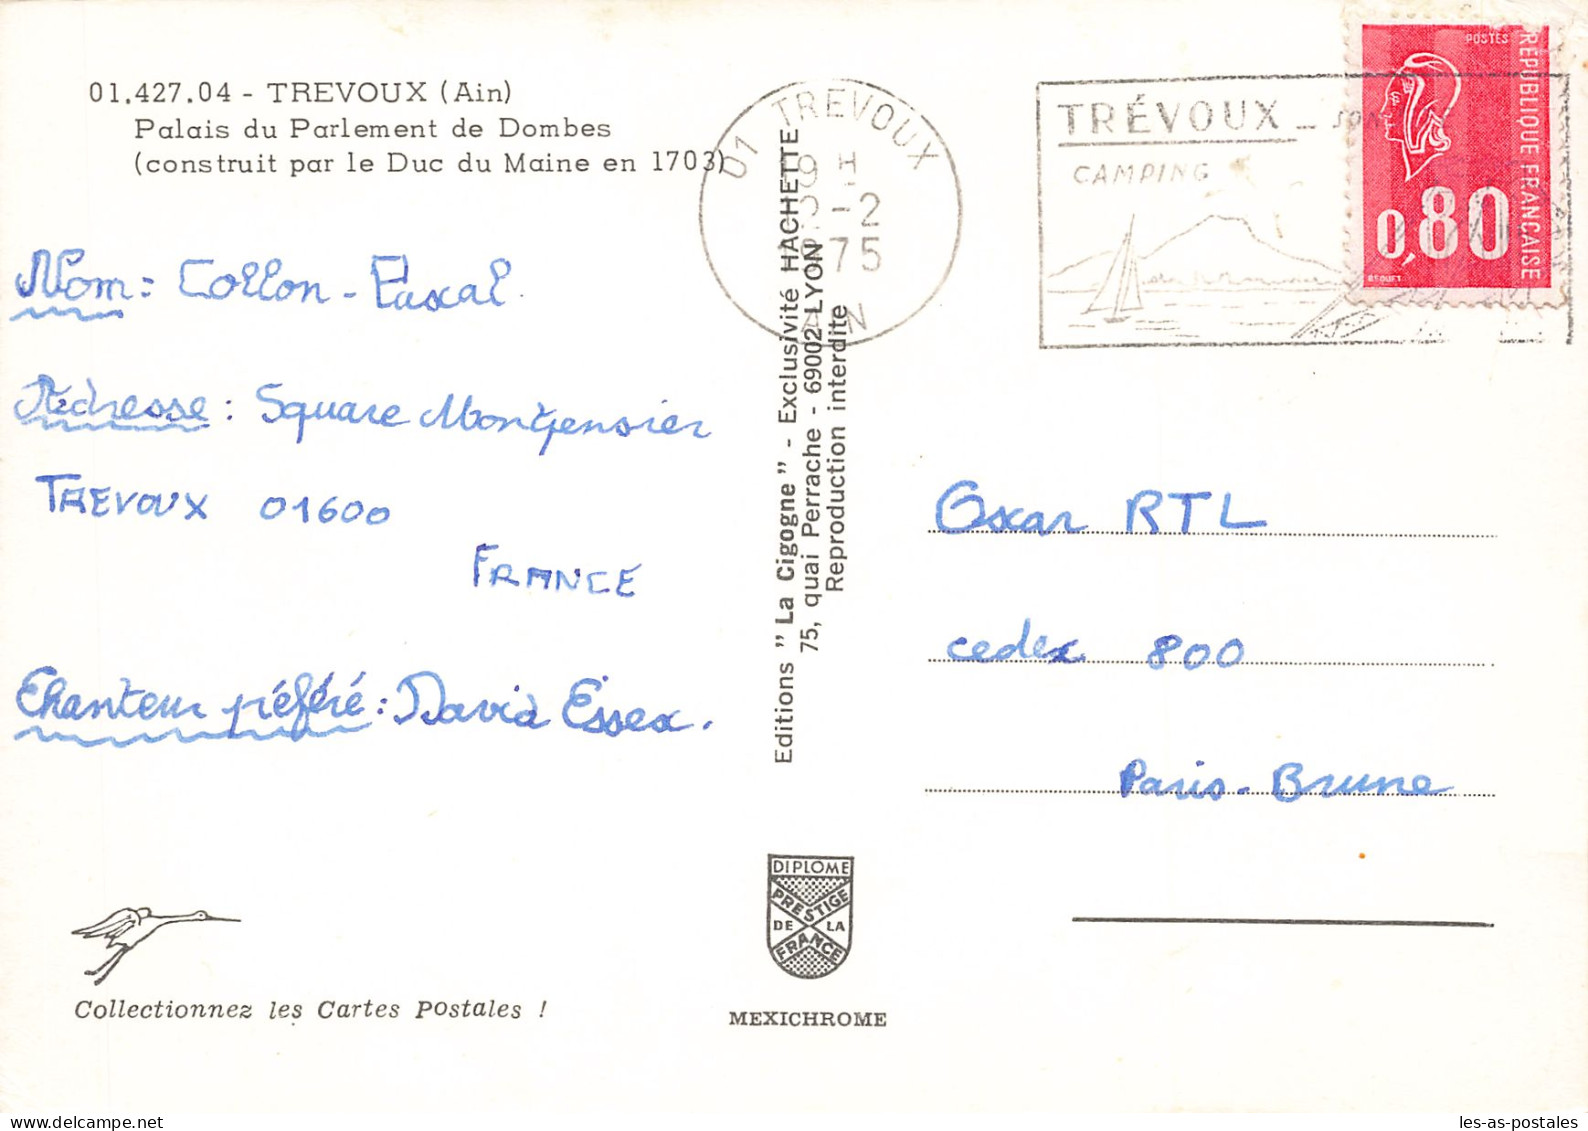 01.427.04 - TREVOUX (Ain)
Palais du Parlement de Dombes
(construit par le Duc du Maine en 1703)
Nom: Collon - Pascal
Adresse: Square Montpensier
TREVOUX 01600
FRANCE
Chanteur préféré: David Essex.
Collectionnez les Cartes Postales !
Editions "La Cigogne" - Exclusivité HACHETTE
75, quai Perrache - 69002 LYON
Reproduction interdite
DIPLOME
PRESTIGE
DE LA
FRANCE
MEXICHROME
01 TREVOUX
9 H
-2
1975
AIN
TRÉVOUX - SON
CAMPING
POSTES
RÉPUBLIQUE FRANÇAISE
0,80
BEQUET
Oscar RTL
cedex 800
Paris-Brune
les-as-postales